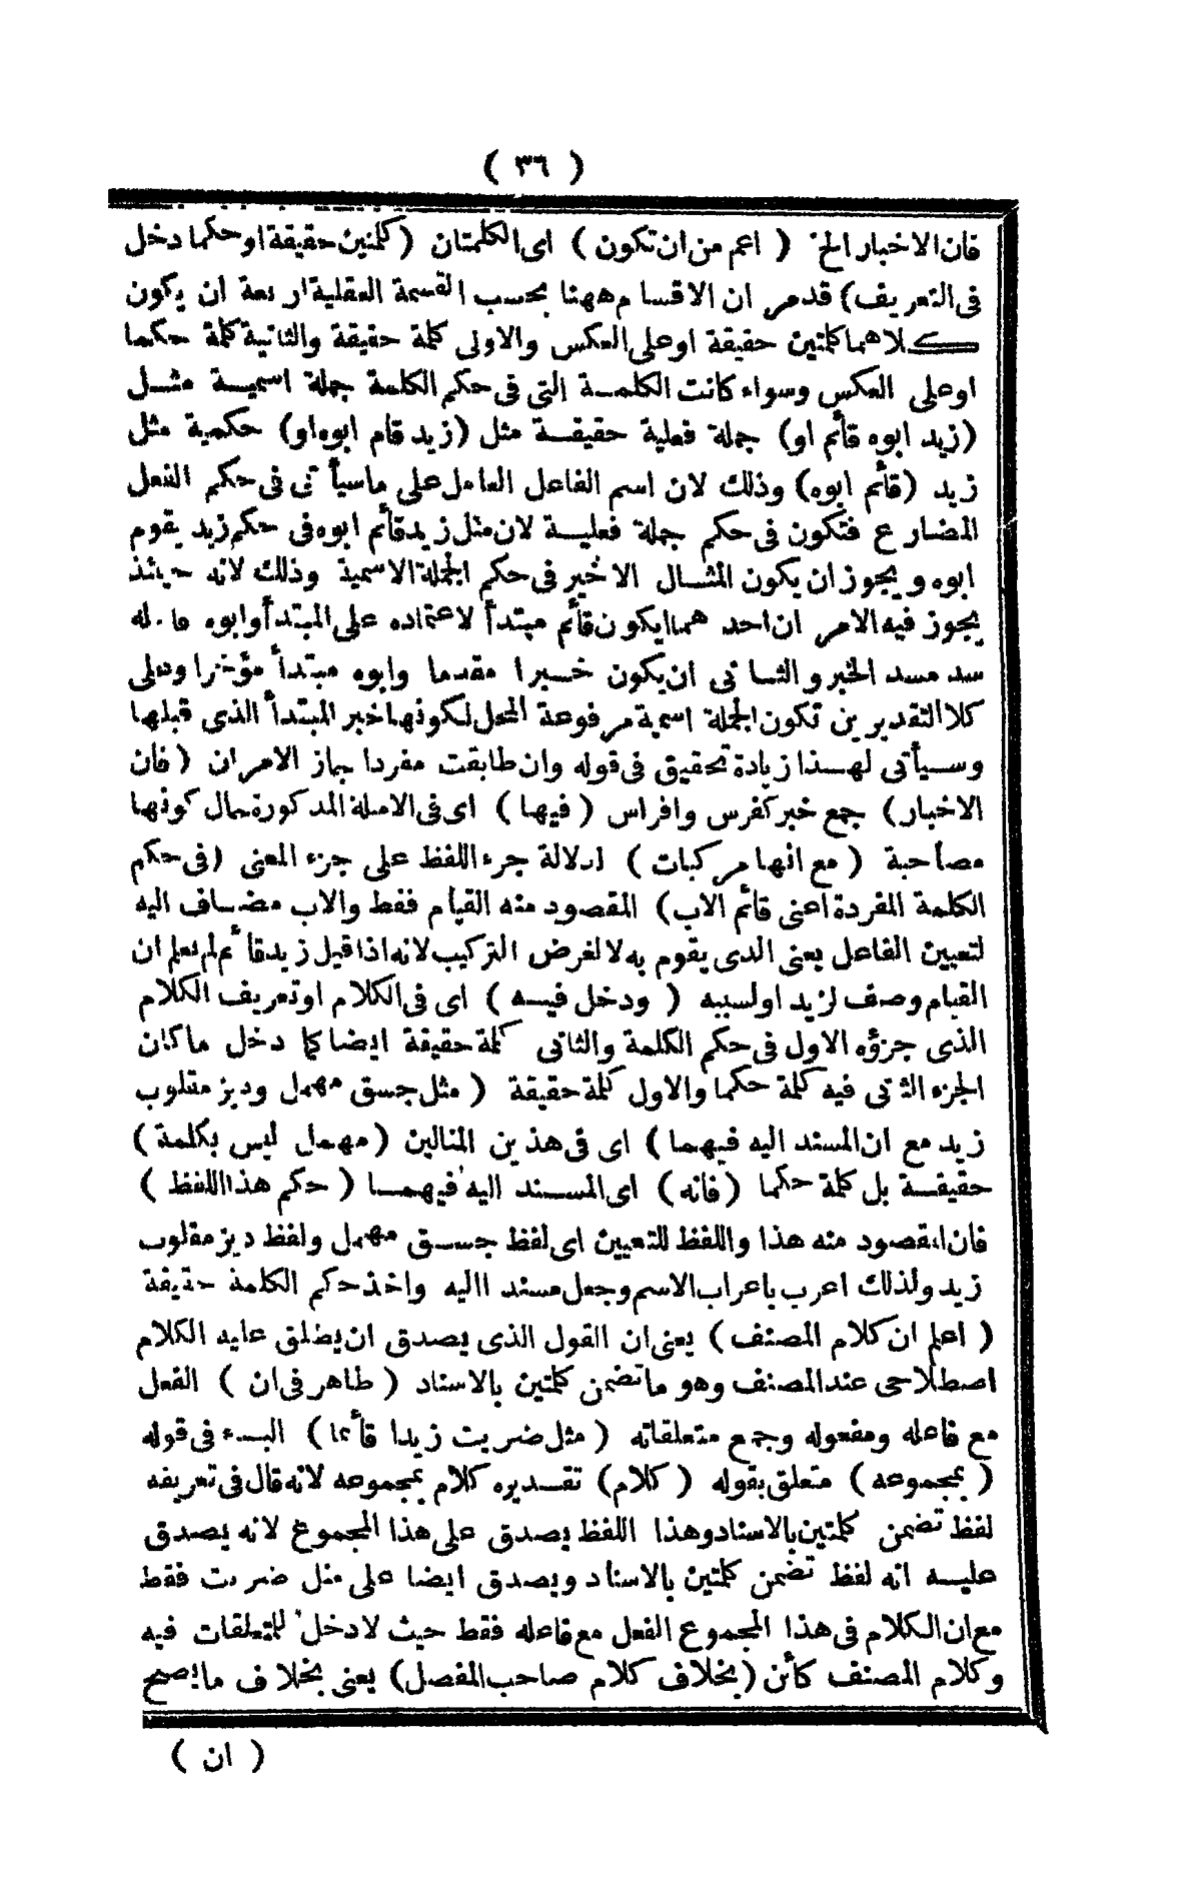 ( ٣٦ )
فان الاخبار الخ ( اعم من ان تكون ) اى الكلمتان ( كلمتين حقيقة او حكما دخل
فى التعريف) قد مر ان الاقسام ههنا بحسب القسمة العقلية اربعة ان يكون
كلاهما كلمتين حقيقة او على العكس والاولى كلمة حقيقة والثانية كلمة حكما
او على العكس وسواء كانت الكلمة التى فى حكم الكلمة جملة اسمية مثل
(زيد ابوه قائم او) جملة فعلية حقيقة مثل (زيد قام ابوه او) حكمية مثل
زيد (قائم ابوه) وذلك لان اسم الفاعل العامل على ماسيأتى فى حكم الفعل
المضارع فتكون فى حكم جملة فعلية لان مثل زيد قائم ابوه فى حكم زيد يقوم
ابوه ويجوز ان يكون المثال الاخير فى حكم الجملة الاسمية وذلك لانه حينئذ
يجوز فيه الامران احدهما ايكون قائم مبتدأ لاعتماده على المبتدأ وابوه فاعله
سد مسد الخبر والثانى ان يكون خبرا مقدما وابوه مبتدأ مؤخرا وعلى
كلا التقديرين تكون الجملة اسمية مرفوعة المحل لكونها خبر المبتدأ الذى قبلها
وسيأتى لهذا زيادة تحقيق فى قوله وان طابقت مفردا جاز الامران (فان
الاخبار) جمع خبر كفرس وافراس (فيها) اى فى الامثلة المذكورة حال كونها
مصاحبة ( مع انها مركبات ) لدلالة جزء اللفظ على جزء المعنى (فى حكم
الكلمة المفردة اعنى قائم الاب) المقصود منه القيام فقط والاب مضاف اليه
لتعيين الفاعل يعنى الذى يقوم به لا لغرض التركيب لانه اذا قيل زيد قائم لم يعلم ان
القيام وصف لزيد او لسببه ( ودخل فيه ) اى فى الكلام او تعريف الكلام
الذى جزؤه الاول فى حكم الكلمة والثانى كلمة حقيقة ايضا كما دخل ما كان
الجزء الثانى فيه كلمة حكما والاول كلمة حقيقة ( مثل جسق مهمل وديز مقلوب
زيد مع ان المسند اليه فيهما ) اى فى هذين المثالين (مهمل ليس بكلمة )
حقيقة بل كلمة حكما (فانه) اى المسند اليه فيهما ( حكم هذا اللفظ )
فان المقصود منه هذا واللفظ للتعيين اى لفظ جسق مهمل ولفظ ديز مقلوب
زيد ولذلك اعرب باعراب الاسم وجعل مسندا اليه واخذ حكم الكلمة حقيقة
( اعلم ان كلام المصنف ) يعنى ان القول الذى يصدق ان يطلق عليه الكلام
اصطلاحى عند المصنف وهو ما تضمن كلمتين بالاسناد ( ظاهر فى ان ) الفعل
مع فاعله ومفعوله وجمع متعلقاته ( مثل ضربت زيدا قائما ) الباء فى قوله
( بمجموعه ) متعلق بقوله ( كلام) تقديره كلام بمجموعه لانه قال فى تعريفه
لفظ تضمن كلمتين بالاسناد وهذا اللفظ يصدق على هذا المجموع لانه يصدق
عليه انه لفظ تضمن كلمتين بالاسناد ويصدق ايضا على مثل ضربت فقط
مع ان الكلام فى هذا المجموع الفعل مع فاعله فقط حيث لا دخل للمتعلقات فيه
وكلام المصنف كائن (بخلاف كلام صاحب المفصل) يعنى بخلاف ما يصح
( ان )